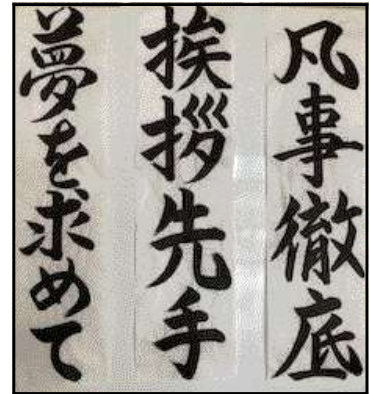 凡事徹底
挨拶先手
夢を求めて